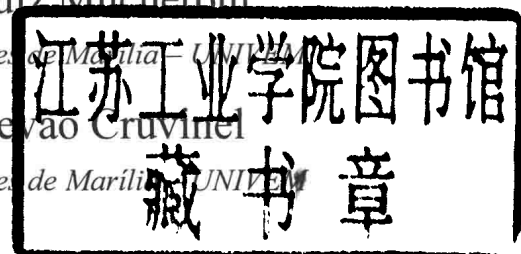 es de Marília – UNIVEM
江苏工业学院图书馆
evão Cruvinel
es de Marília UNIVEM
藏书章